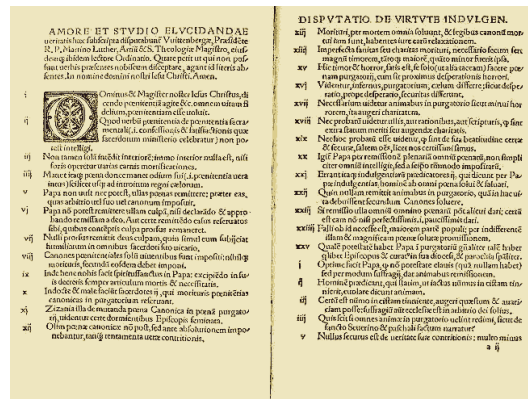 AMORE ET STVDIO ELVCIDANDAE
ueritatis hæc subscripta disputabunť Vuittenbergæ, Præsidēte
R. P. Martino Luther, Artiū & S. Theologiæ Magistro, eius-
demq; ibidem lectore Ordinario. Quare petit ut qui non pos-
sunt uerbis præsentes nobiscum disceptare, agant id literis ab-
sentes. In nomine domini nostri Iesu Christi. Amen.
i Dominus & Magister noster Iesus Christus, di-
cendo pœnitentiā agite &c. omnem uitam fi-
delium, pœnitentiam esse uoluit.
ij Quod uerbū pœnitentia de pœnitentia sacra-
mentali (.i. confessionis & satisfactionis quæ
sacerdotum ministerio celebratur) non po-
test intelligi.
iij Non tamen solā intēdit interiorē; immo interior nulla est, nisi
foris operetur uarias carnis mortificationes.
iiij Manet itaq; pœna donec manet odium sui (.i. pœnitentia uera
intus) scilicet usq; ad introitum regni cælorum.
v Papa non uult nec potest, ullas pœnas remittere; præter eas,
quas arbitrio uel suo uel canonum imposuit.
vj Papa nō potest remittere ullam culpā, nisi declarādo & appro-
bando remissam a deo. Aut certe remittēdo casus reseruatos
sibi, quibus contēptis culpa prorsus remaneret.
vij Nulli prorsus remittit deus culpam, quin simul eum subijciat
humiliatum in omnibus sacerdoti suo uicario.
viij Canones pœnitentiales solū uiuentibus sunt impositi; nihilq;
morituris, secundū eosdem debet imponi.
ix Inde bene nobis facit spiritussanctus in Papa; excipiēdo in su-
is decretis semper articulum mortis & necessitatis.
x Indocte & male faciūt sacerdotes ij, qui morituris pœnitētias
canonicas in purgatorium reseruant.
xj Zizania illa de mutanda pœna Canonica in pœnā purgato-
rij, uidentur certe dormientibus Episcopis seminata.
xij Olim pœnæ canonicæ nō post, sed ante absolutionem impo-
nebantur, tanq̃ tentamenta ueræ contritionis.
DISPVTATIO DE VIRTVTE INDVLGEN.
xiij Morituri, per mortem omnia soluunt, & legibus canonū mor-
tui iam sunt, habentes iure earū relaxationem.
xiiij Imperfecta sanitas seu charitas morituri, necessario secum fert
magnū timorem, tātoq; maiorē, quāto minor fuerit ipsa.
xv Hic timor & horror, satis est, se solo (ut alia taceam) facere pœ-
nam purgatorij, cum sit proximus desperationis horrori.
xvj Videntur, infernus, purgatorium, cælum differre; sicut despe-
ratio, prope desperatio, securitas differunt.
xvij Necessarium uidetur animabus in purgatorio sicut minui hor-
rorem, ita augeri charitatem.
xviij Nec probatū uidetur ullis, aut rationibus, aut scripturis, q̃ sint
extra statum meriti seu augendæ charitatis.
xix Nec hoc probatū esse uidetur, q̃ sint de sua beatitudine certæ
& securæ, saltem oēs, licet nos certissimi simus.
xx Igiť Papa per remissionē plenariā omniū pœnarum, non simpli-
citer omniū intelligit, sed a seipso tātummodo impositarū.
xxj Errant itaq; indulgentiarū prædicatores ij, qui dicunt per Pa-
pæ indulgentias, hominē ab omni pœna solui & saluari.
xxij Quin nullam remittit animabus in purgatorio, quā in hac ui-
ta debuissent secundum Canones soluere.
xxiij Si remissio ulla omniū omnino pœnarū pōt alicui dari; certū
est eam nō nisi perfectissimis, i. paucissimis dari.
xxiiij Falli ob id necesse est, maiorem partē populi; per indifferentē
illam & magnificam pœnæ solutæ promissionem.
xxv Qualē potestatē habet Papa in purgatoriū gñaliter talē habet
quilibet Episcopus & curatus in sua diocesi, & parochia spāliter.
i Optime facit Papa, q̃ nō potestate clauis (quā nullam habet)
sed per modum suffragij, dat animabus remissionem.
ij Hominē prædicant, qui statim, ut iactus nūmus in cistam tin-
nierit, euolare dicunt animam.
iij Certū est nūmo in cistam tinniente, augeri quæstum & auari-
ciam posse; suffragiū aūt ecclesiæ est in arbitrio dei solius.
iiij Quis scit si omnes animæ in purgatorio uelint redimi, sicut de
sancto Seuerino & paschali factum narratur?
v Nullus securus est de ueritate suæ contritionis; multo minus
a ij